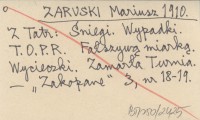 ZARUSKI Mariusz 1910.
Z Tatr: Śniegi. Wypadki.
T.O.P.R. Fałszywą miarką.
Wycieczki. Zamarła Turnia.
— „Zakopane" 3, nr 18-19.